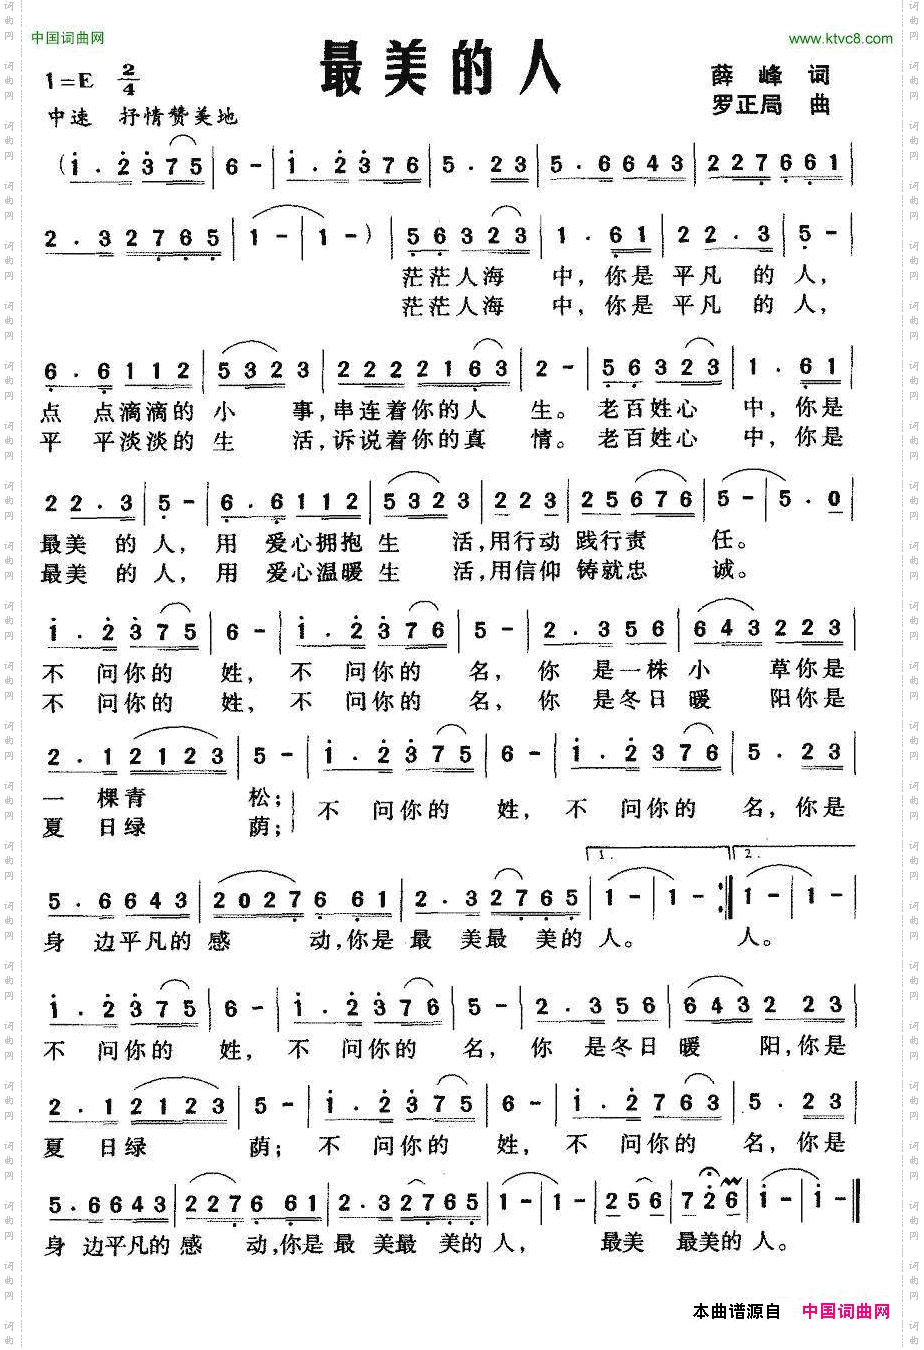 中国词曲网 www.ktvc8.com
最美的人
1=E 2/4
薛峰 词
中速 抒情赞美地
罗正局 曲
(1.2375|6-|1.2376|5.23|5.6643|227661|
2.32765|1-|1-)|56323|1.61|22.3|5-|
茫茫人海 中,你是平凡 的人,
茫茫人海 中,你是平凡 的人,
6.6112|5323|2222163|2-|56323|1.61|
点 点滴滴的小 事,串连着你的人 生。老百姓心 中,你是
平 平淡淡的生 活,诉说着你的真 情。老百姓心 中,你是
22.3|5-|6.6112|5323|223|25676|5-|5.0|
最美 的人, 用 爱心拥抱生 活,用行动 践行责 任。
最美 的人, 用 爱心温暖生 活,用信仰 铸就忠 诚。
1.2375|6-|1.2376|5-|2.356|643223|
不 问你的 姓, 不 问你的 名,你 是一株小 草你是
不 问你的 姓, 不 问你的 名,你 是冬日暖 阳你是
2.12123|5-|1.2375|6-|1.2376|5.23|
一 棵青 松; 不 问你的 姓, 不 问你的 名,你是
夏 日绿 荫;
1. 2.
5.6643|2027661|2.32765|1-|1-:|1-|1-|
身 边平凡的感 动,你是最 美最 美的人。 人。
1.2375|6-|1.2376|5-|2.356|643223|
不 问你的 姓, 不 问你的 名, 你 是冬日暖 阳,你是
2.12123|5-|1.2375|6-|1.2763|5.23|
夏 日绿 荫; 不 问你的 姓, 不 问你的 名,你是
5.6643|227661|2.32765|1-|1-|256|726|1-|1-‖
身 边平凡的感 动,你是最 美最 美的人, 最美 最美的人。
本曲谱源自 中国词曲网